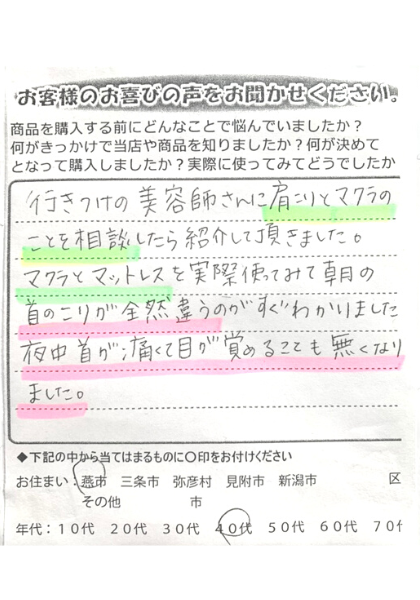 お客様のお喜びの声をお聞かせください。
商品を購入する前にどんなことで悩んでいましたか？
何がきっかけで当店や商品を知りましたか？何が決めて
となって購入しましたか？実際に使ってみてどうでしたか
行きつけの美容師さんに肩こりとマクラの
ことを相談したら紹介して頂きました。
マクラとマットレスを実際使ってみて朝の
首のこりが全然違うのがすぐわかりました
夜中首が痛くて目が覚めることも無くなり
ました。
◆下記の中から当てはまるものに〇印をお付けください
お住まい：燕市 三条市 弥彦村 見附市 新潟市 区
その他 市
年代：１０代 ２０代 ３０代 ４０代 ５０代 ６０代 ７０代